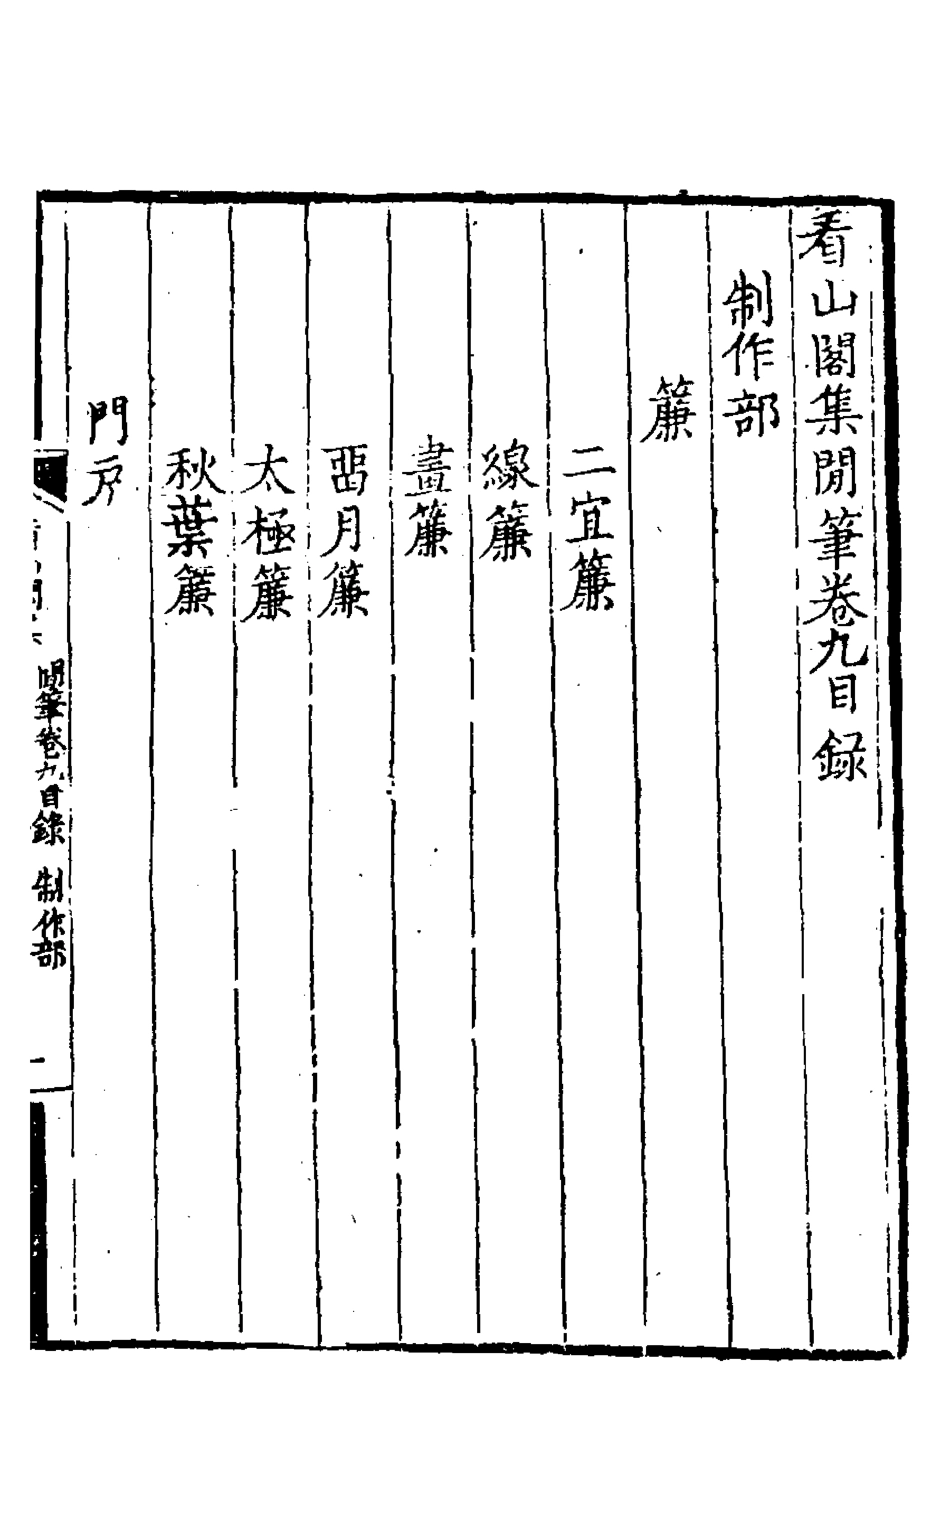 看山閣集閒筆卷九目録
制作部
簾
二宜簾
線簾
畫簾
畱月簾
太極簾
秋葉簾
門戶
閒筆卷九目錄 制作部
一